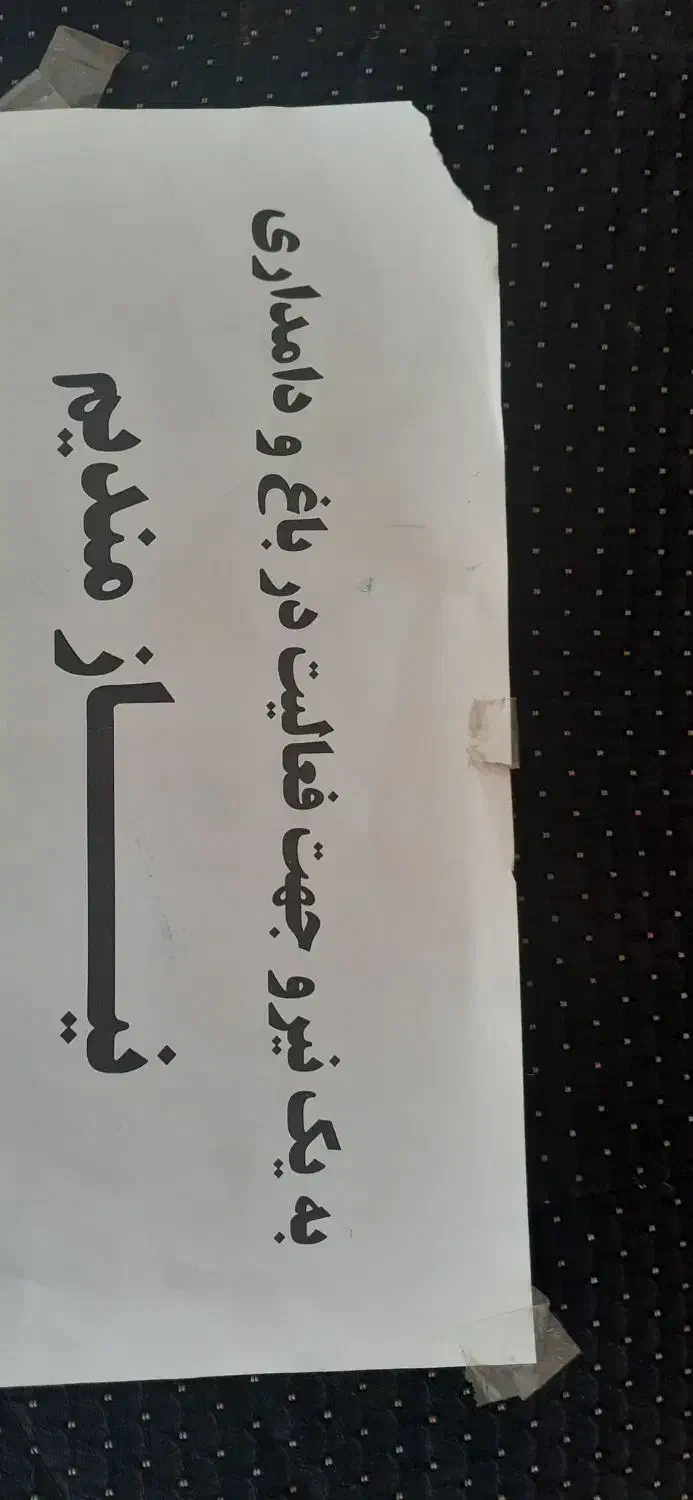 به یک نیرو جهت فعالیت در باغ و دامداری
نیـــــاز مندیم